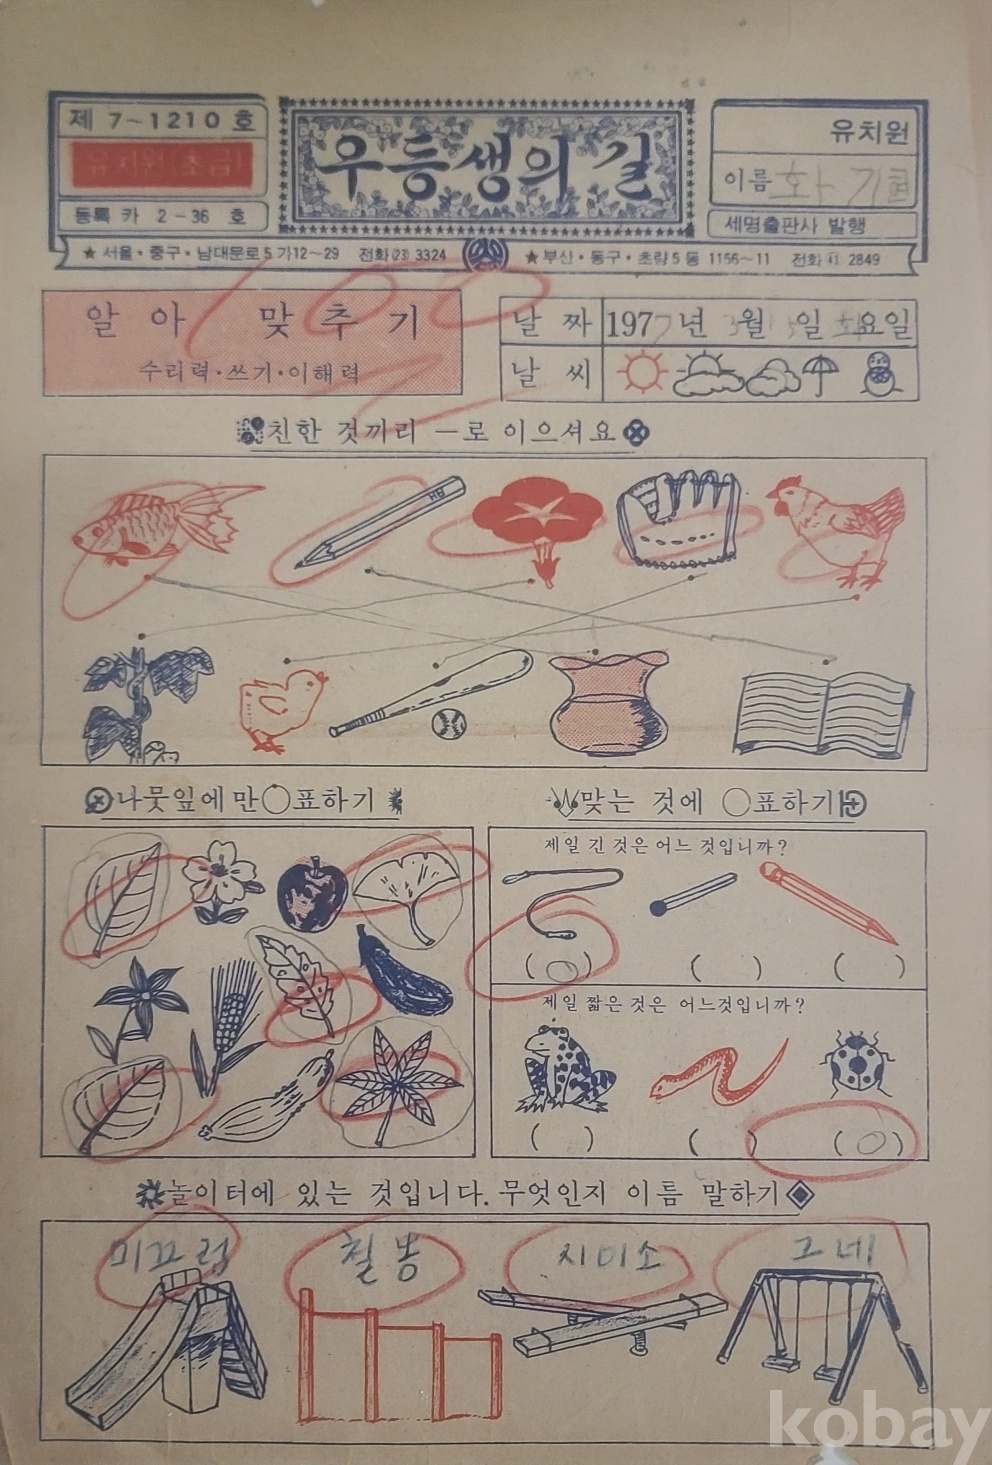 제 7~1210 호
유치원(초급)
등록 카 2-36 호
우등생의 길
유치원
이름
세명출판사 발행
★ 서울·중구·남대문로5가12~29 전화(23) 3324
★ 부산·동구·초량5동 1156~11 전화 2849
100
알아 맞추기
수리력·쓰기·이해력
날짜 1977년 3월 일 요일
날씨
친한 것끼리 ―로 이으셔요
HB
나뭇잎에만 ○표하기
맞는 것에 ○표하기
제일 긴 것은 어느 것입니까?
( ○ ) ( ) ( )
제일 짧은 것은 어느것입니까?
( ) ( ) ( ○ )
놀이터에 있는 것입니다. 무엇인지 이름 말하기
미끄럼 철봉 시이소 그네
kobay